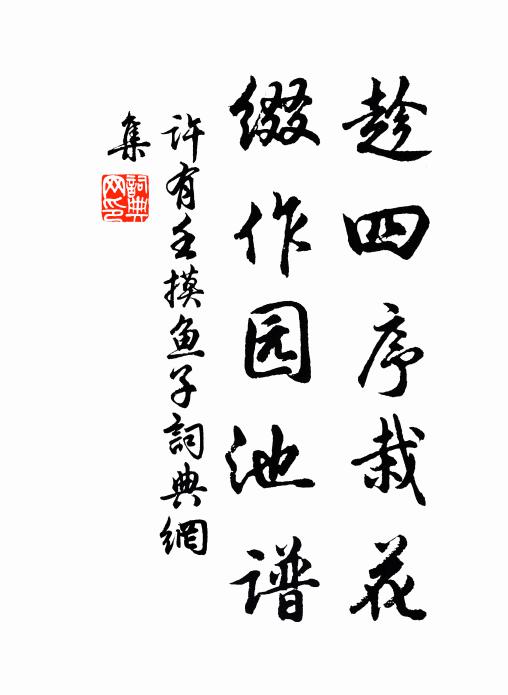 趁四序栽花
缀作园池谱
许有壬摸鱼子詞典網
集
詞典
网印